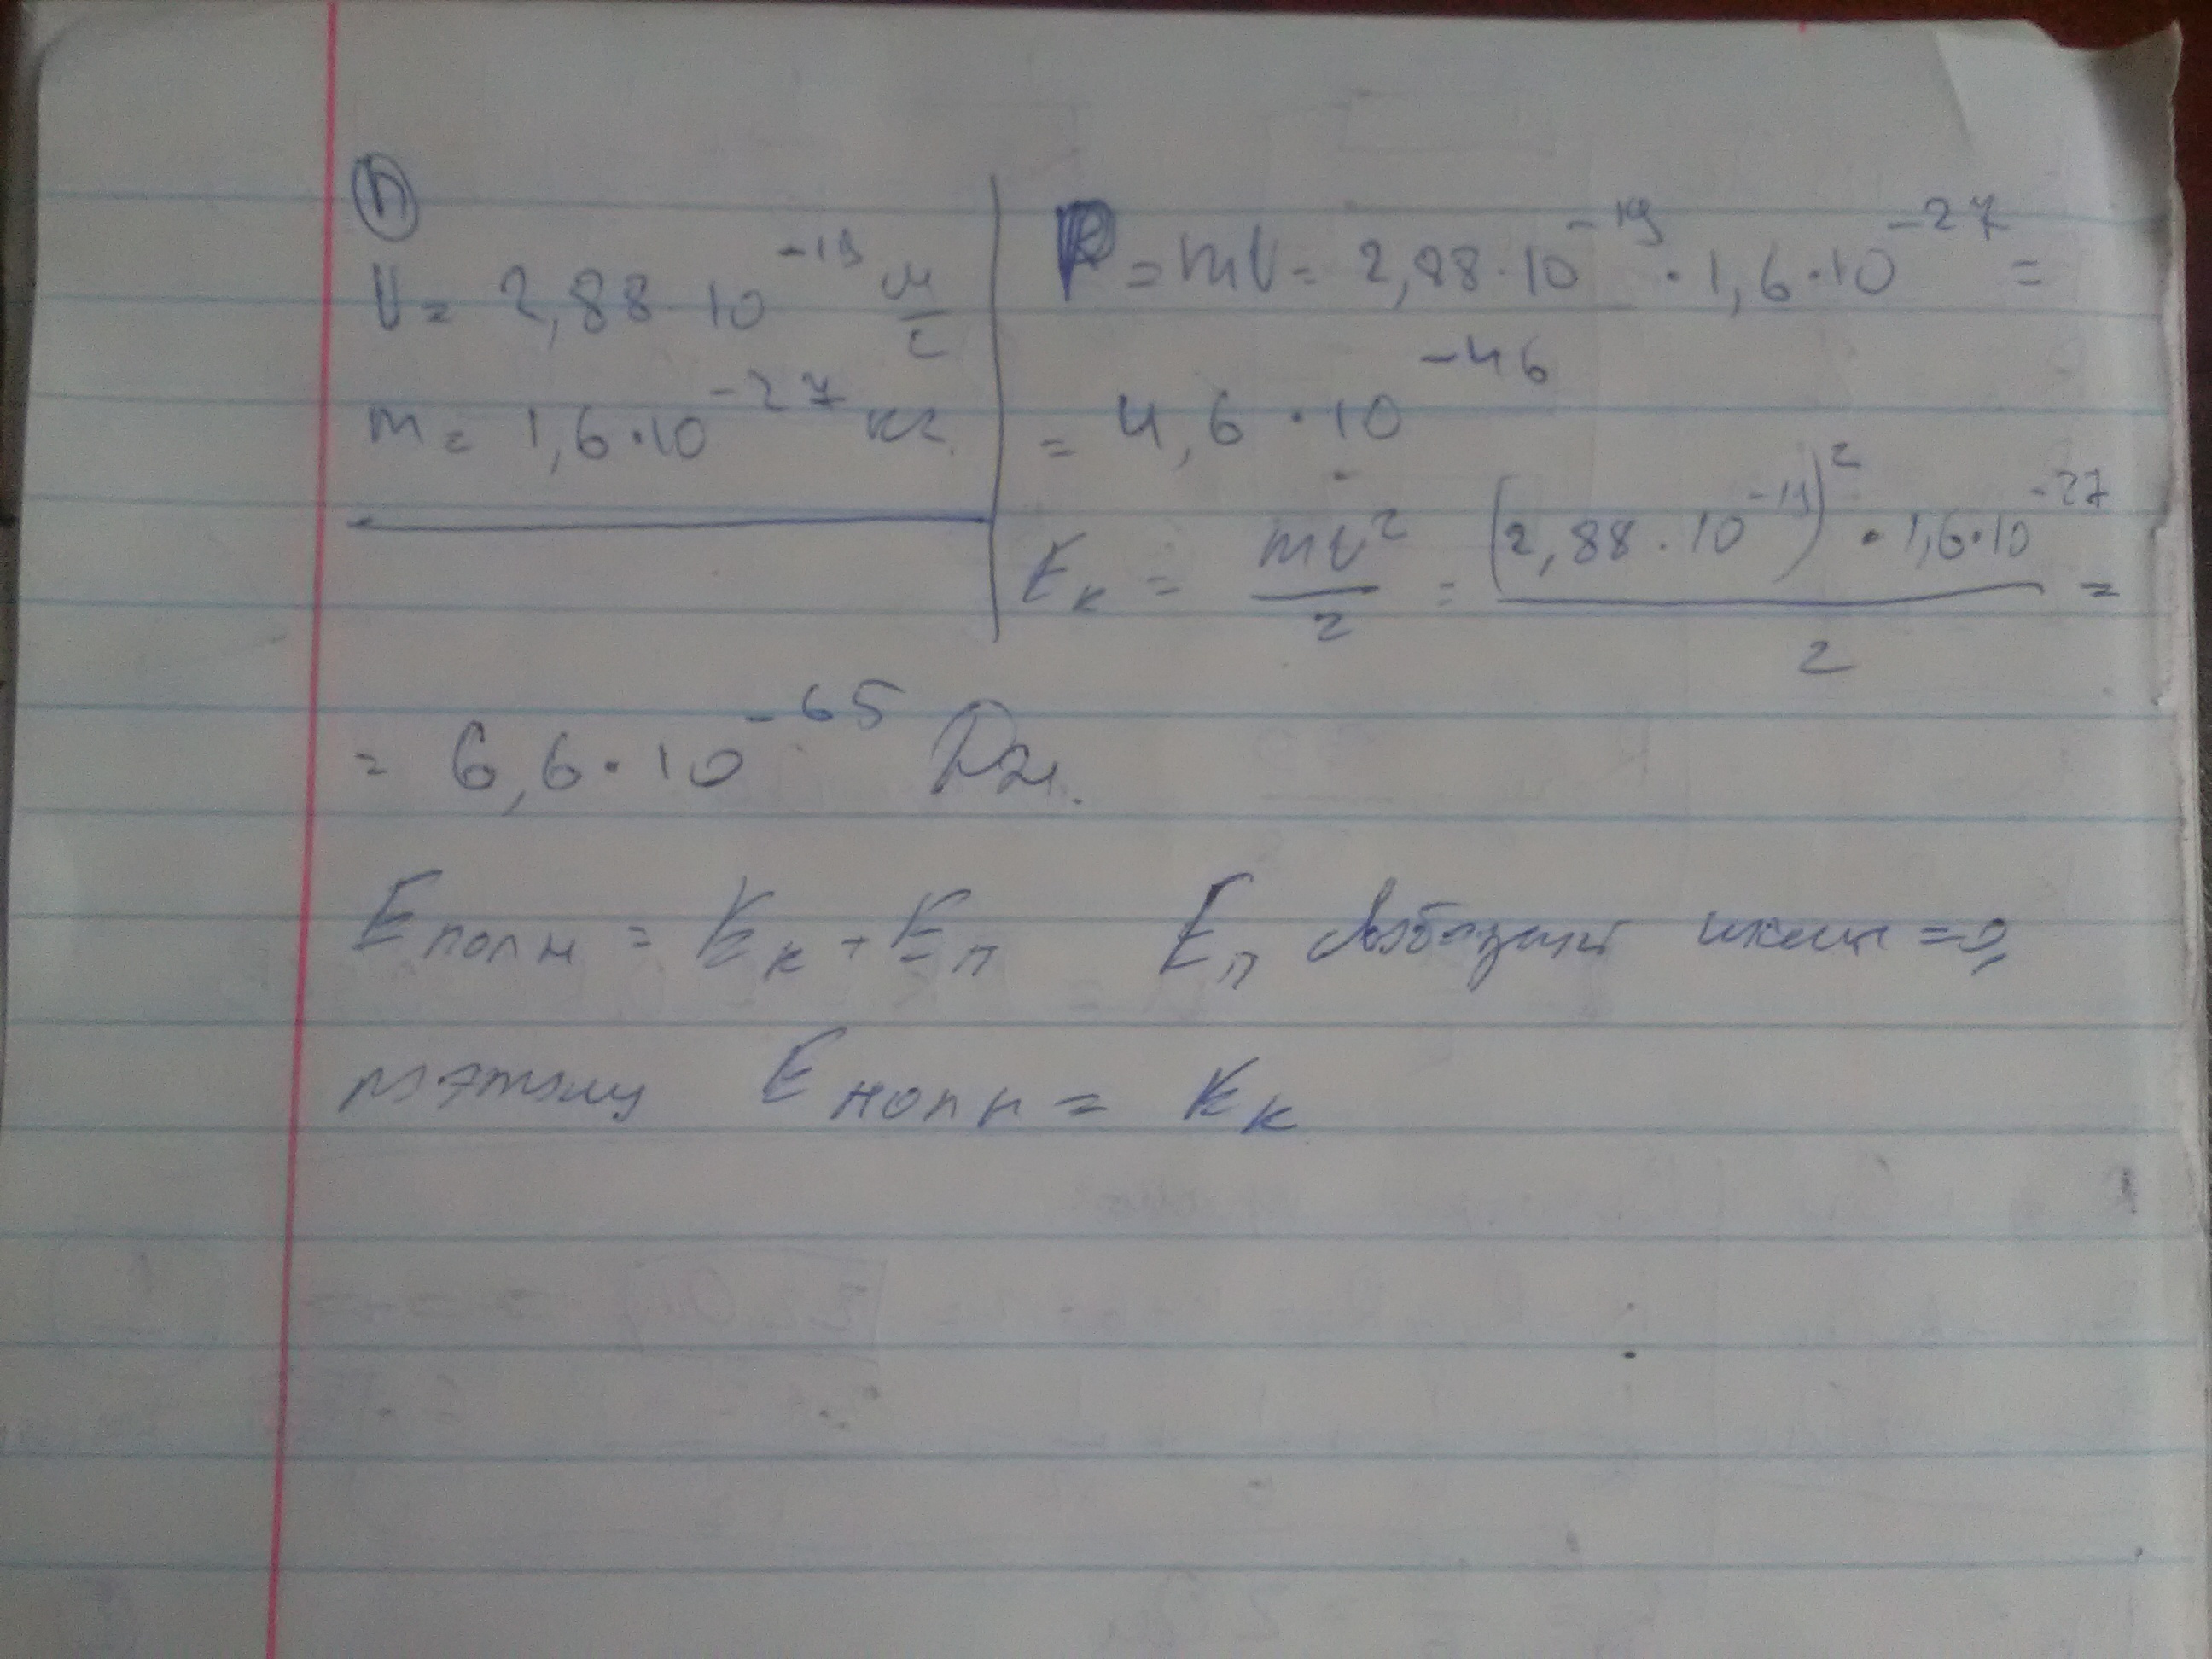 n
V = 2,88·10⁻¹⁹ м/с
m = 1,6·10⁻²⁷ кг.
P = mV = 2,88·10⁻¹⁹ · 1,6·10⁻²⁷ =
= 4,6·10⁻⁴⁶
Eк = mv²/2 = (2,88·10⁻¹⁹)² · 1,6·10⁻²⁷ / 2 =
= 6,6·10⁻⁶⁵ Дж.
Eполн = Eк + Eп Eп = 0,
поэтому Eполн = Eк